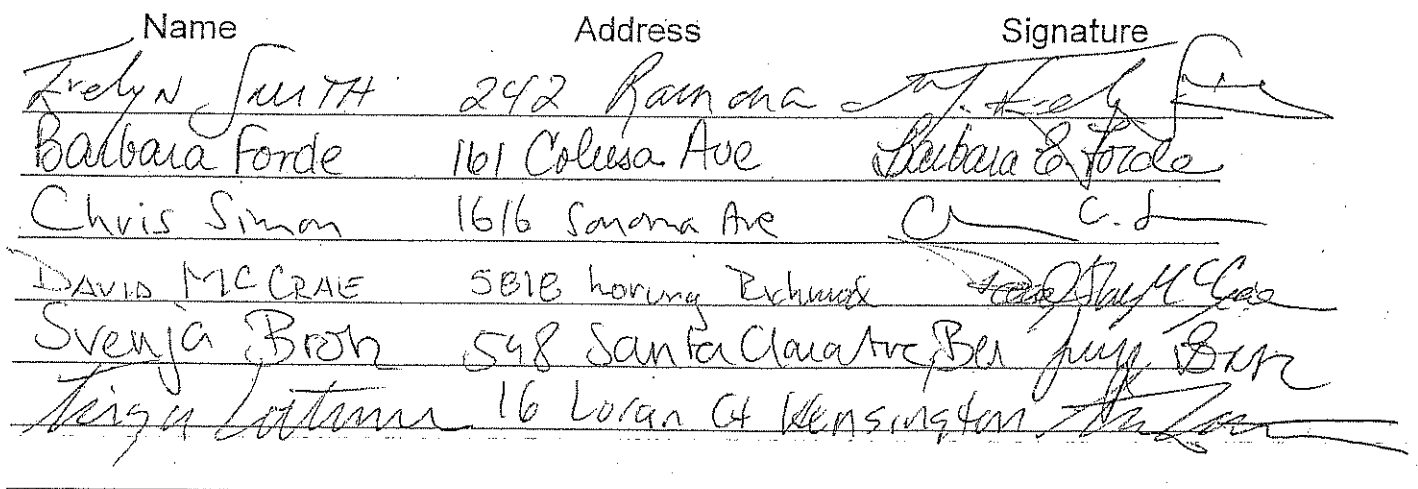 Name Address Signature
Evelyn Smith 242 Ramona
Barbara Forde 161 Colusa Ave Barbara E Forde
Chris Simon 1616 Sonoma Ave C. S
DAVID MCCRAE 5818 Richmond McCrae
Svenja Broh 548 Santa Clara Ave, Ber
16 Loran Ct Kensington